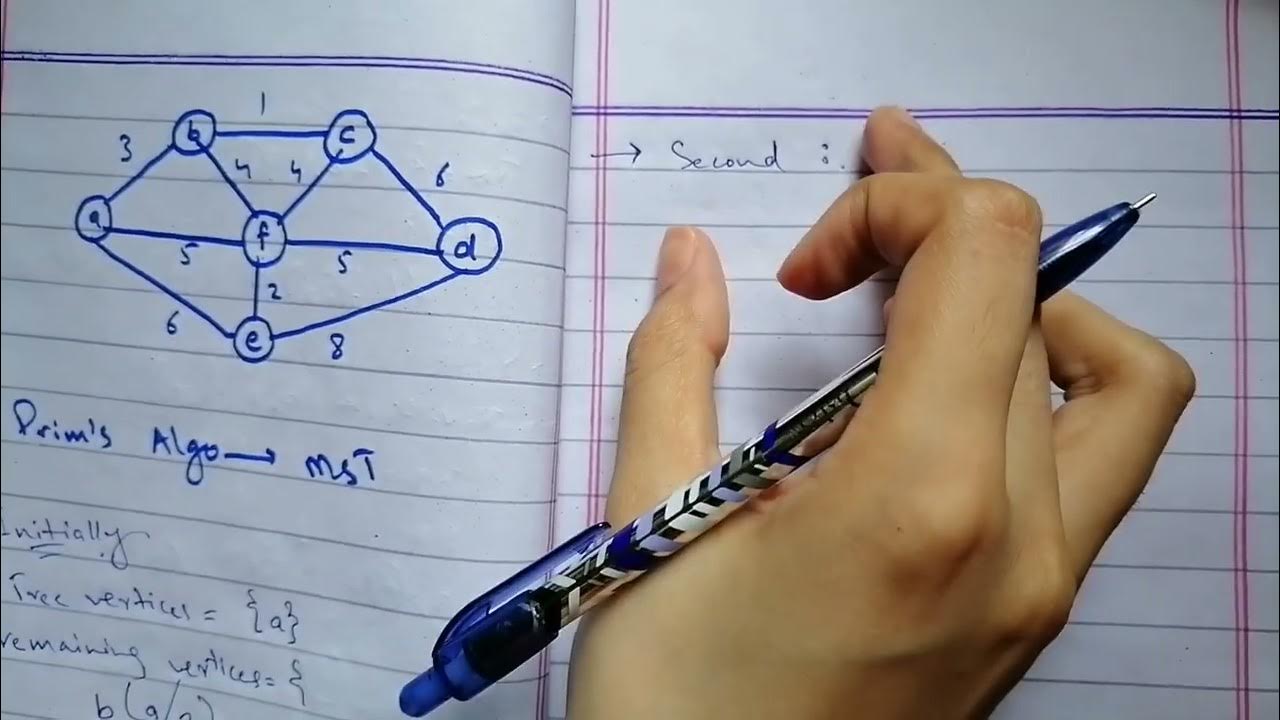 1
b c
3 4 4 6
a f d
5 5
2
6 e 8
Prim's Algo → MST
Initially
Tree vertices = {a}
remaining vertices = {
b(a/
→ Second :